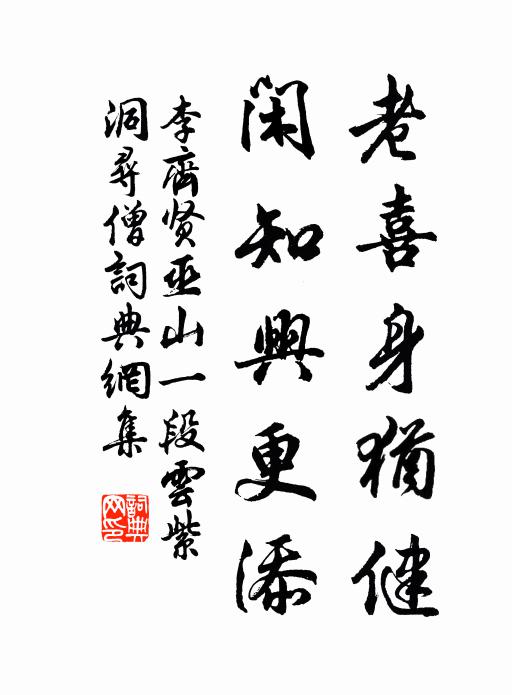 老喜身猶健
閑知興更添
李齊贤巫山一段雲紫
洞尋僧詞典網集
詞典
网印